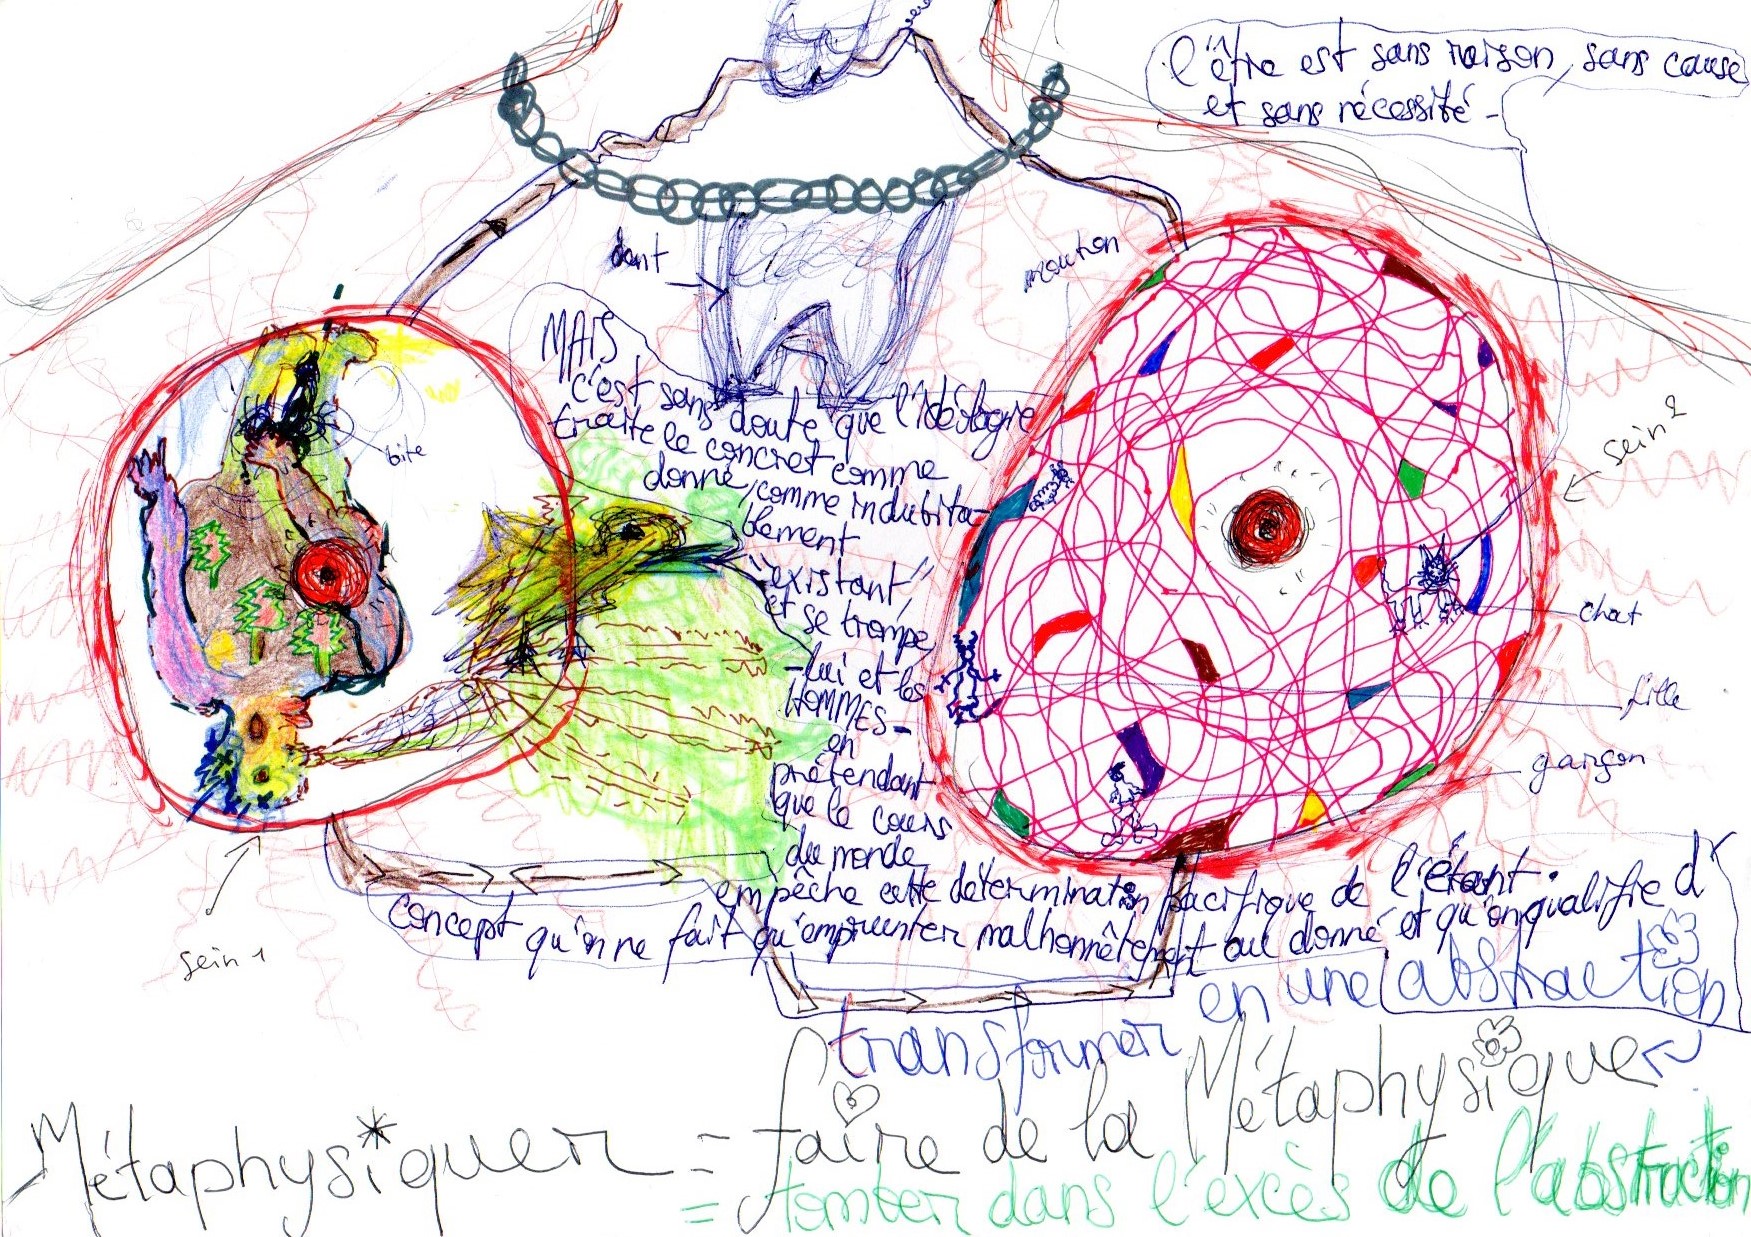 l'être est sans raison, sans cause
et sans nécessité -
dent
mouton
MAIS
c'est sans doute que l'idéologie
traite le concret comme
donné, comme indubita-
blement
"existant",
et se trompe
- lui et les
HOMMES -
en
prétendant
que le cours
du monde
empêche cette détermination pacifique de l'étant.
concept qu'on ne fait qu'emprunter malhonnêtement au donné et qu'on qualifie d'
abstraction
bite
sein 2
chat
fille
garçon
sein 1
transformer en une abstraction
Métaphysiquer = faire de la Métaphysique
= tomber dans l'excès de l'abstraction